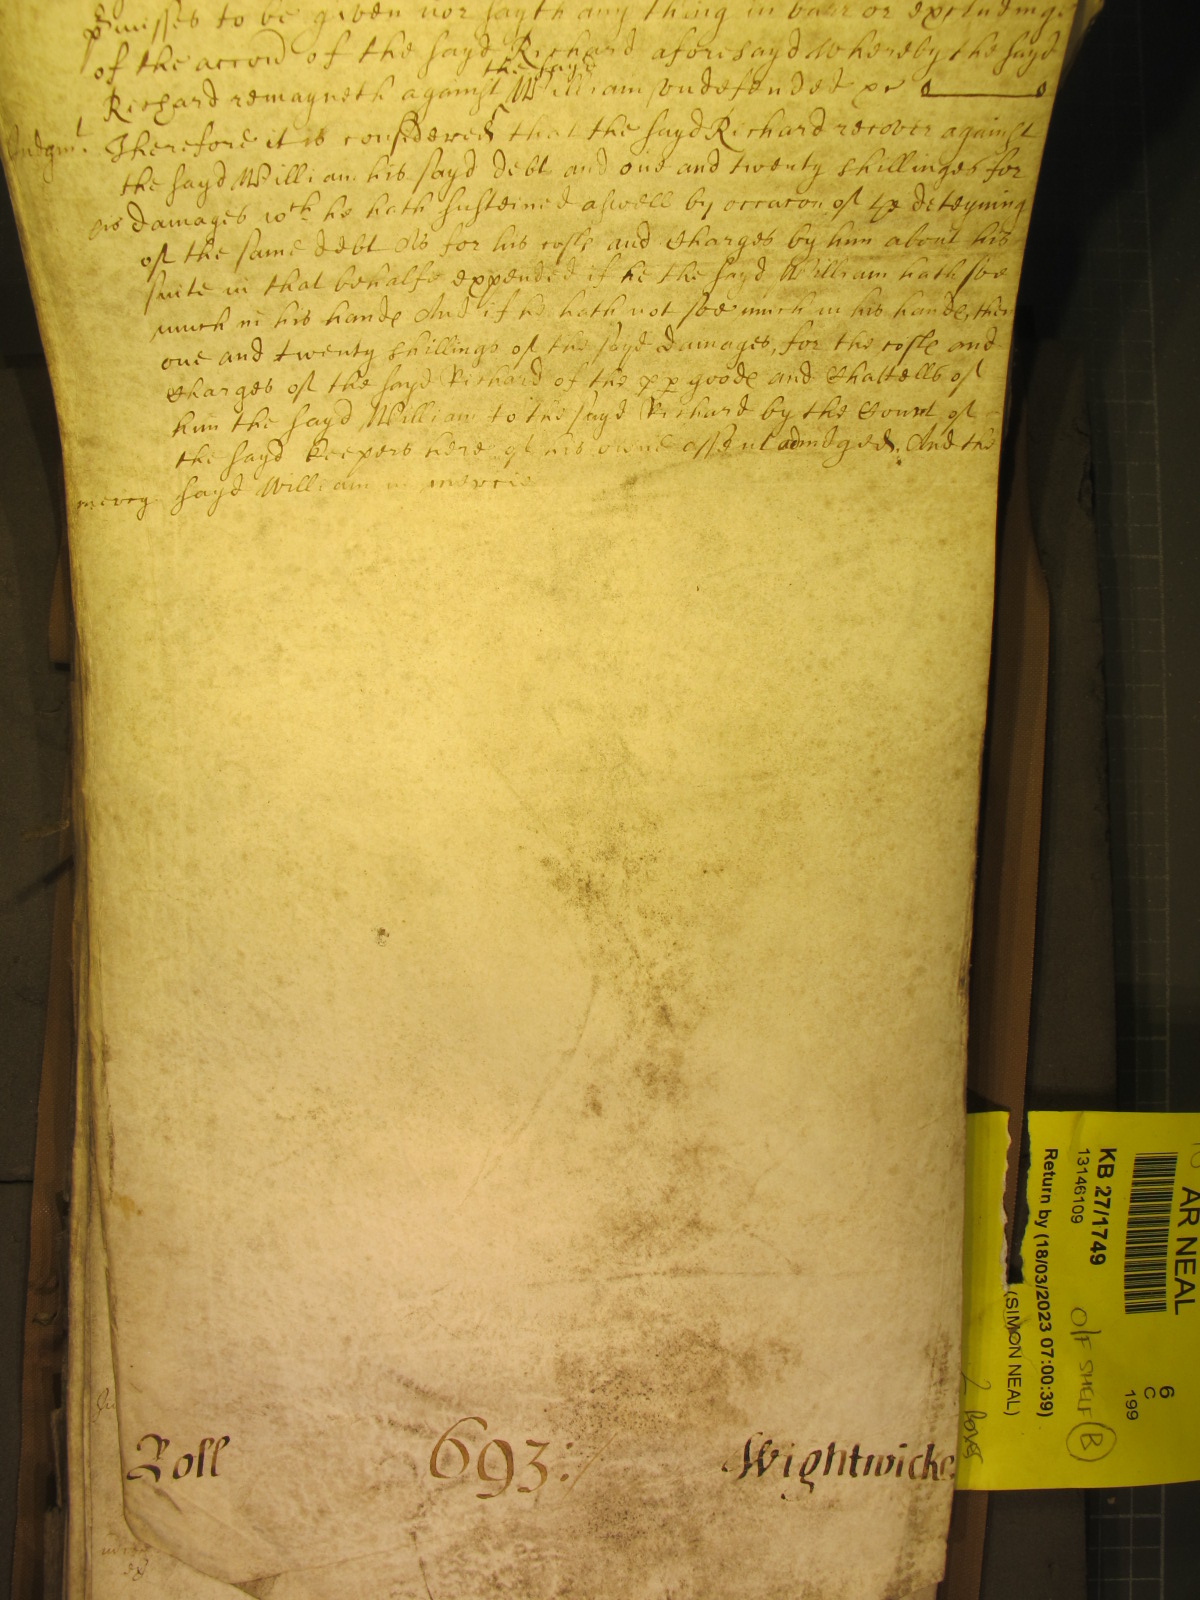 p'misses to be given nor sayth any thing in barr or excluding
of the accord of the sayd Richard aforesayd Whereby the sayd
the sayd
Richard remayneth against William undefended &c
Judgmt. Therefore it is considered that the sayd Richard recover against
the sayd William his sayd debt and one and twenty shillinges for
his damages wch he hath susteined aswell by occacon of ye deteyning
of the same debt As for his costs and Charges by him about his
suite in that behalfe expended if he the sayd William hath soe
much in his hande And if he hath not soe much in his hande, then
one and twenty shillings of the sayd damages, for the costs and
Charges of the sayd Richard of the pp goode and Chattells of
him the sayd William to the sayd Richard by the Court of
the sayd Keepers here of his owne assent adiudged. And the
mercy. sayd William in mercie
Roll 693:/ Wightwicke
AR NEAL
KB 27/1749
13146109
Return by (18/03/2023 07:00:39)
(SIMON NEAL)
6
C
199
O/F SHELF B
2 boxes